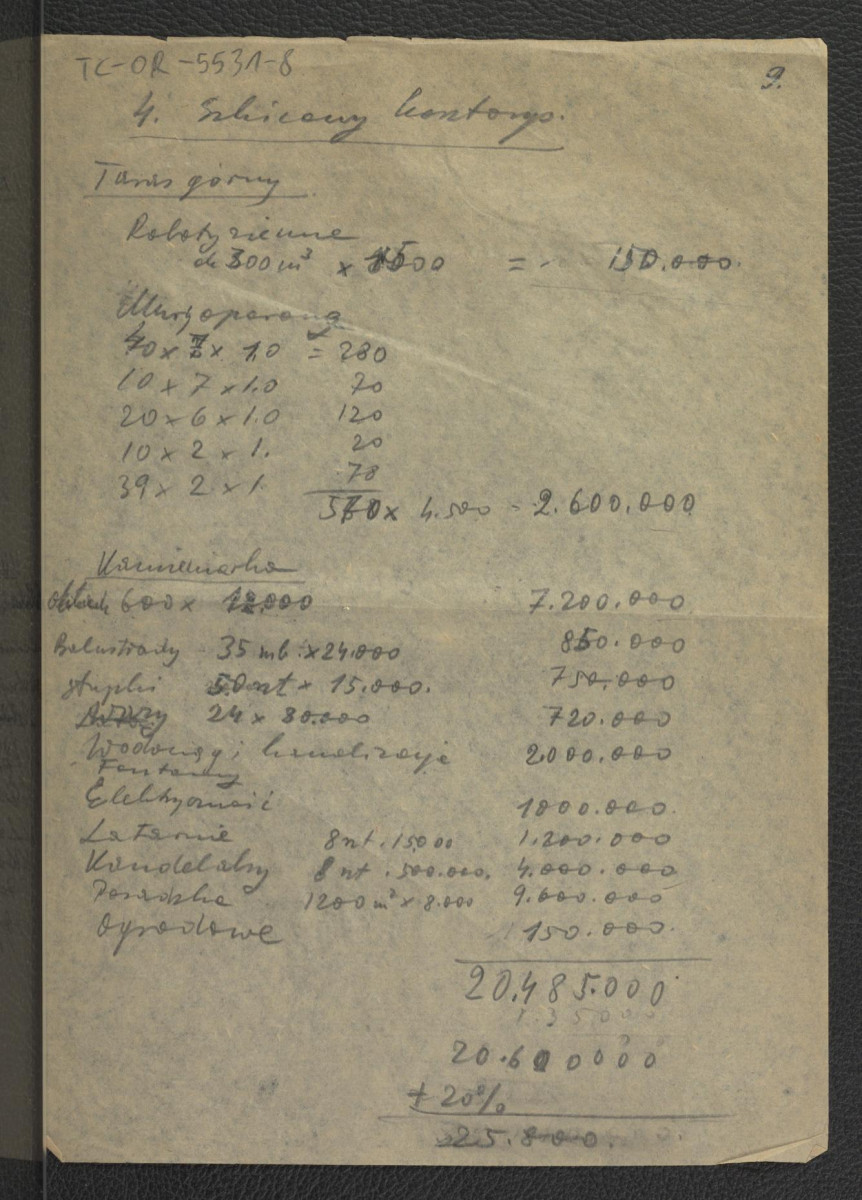 TC-OR-5531-8
9.
4. Szkicowy kosztorys.
Taras górny
Roboty ziemne
300 m³ x 1500 = 150.000.
Mury oporowe
40 x 7 x 1.0 = 280
10 x 7 x 1.0 70
20 x 6 x 1.0 120
10 x 2 x 1. 20
39 x 2 x 1. 78
x 4.500 - 2.600.000
Kamieniarka
600 x 12.000 7.200.000
Balustrady 35 mb. x 24.000 850.000
stupki 50 szt x 15.000. 750.000
24 x 80.000 720.000
Wodociąg i kanalizacje 2000.000
Fontanny
Elektryczność 1000.000.
Latarnie 8 szt. 15000 1.200.000
Kandelabry 8 szt. 500.000. 4.000.000
Posadzka 1200 m² x 8.000 9.600.000
Ogrodowe 150.000.
20.485.000
1.35.000
20.600000
+ 20%
25.800.